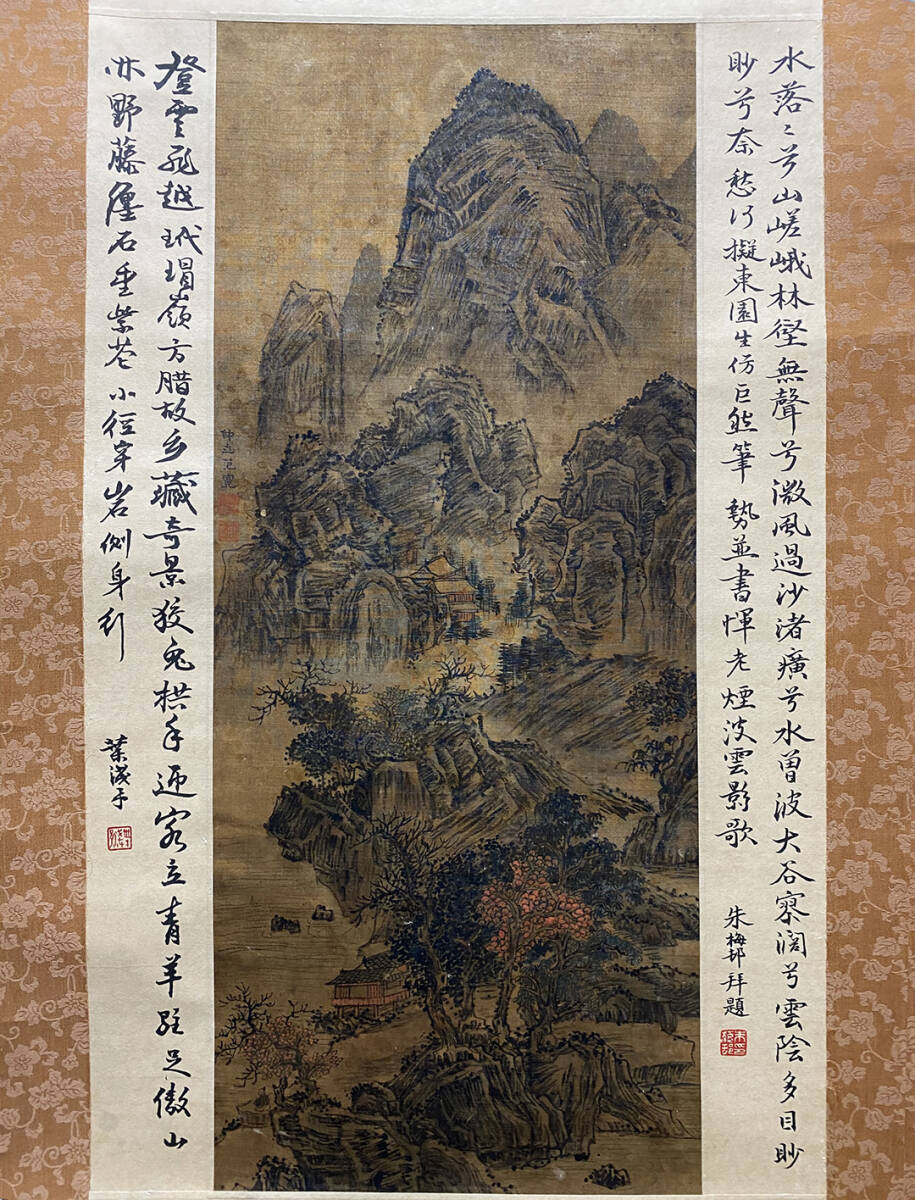 水落々兮山嵯峨林壑無聲兮微風過沙渚廣兮水曾波大谷寥濶兮雲陰多目眇
眇兮奈愁何擬東園生仿巨然筆勢並書惲老煙波雲影歌
朱梅邨拜題
仲立范寬
登雲飛越玳瑁嶺方腊故乡藏奇景狡兔拱手迎客立青羊駐足傲山
林野藤纏石垂紫苍小徑穿岩側身行
葉淺予